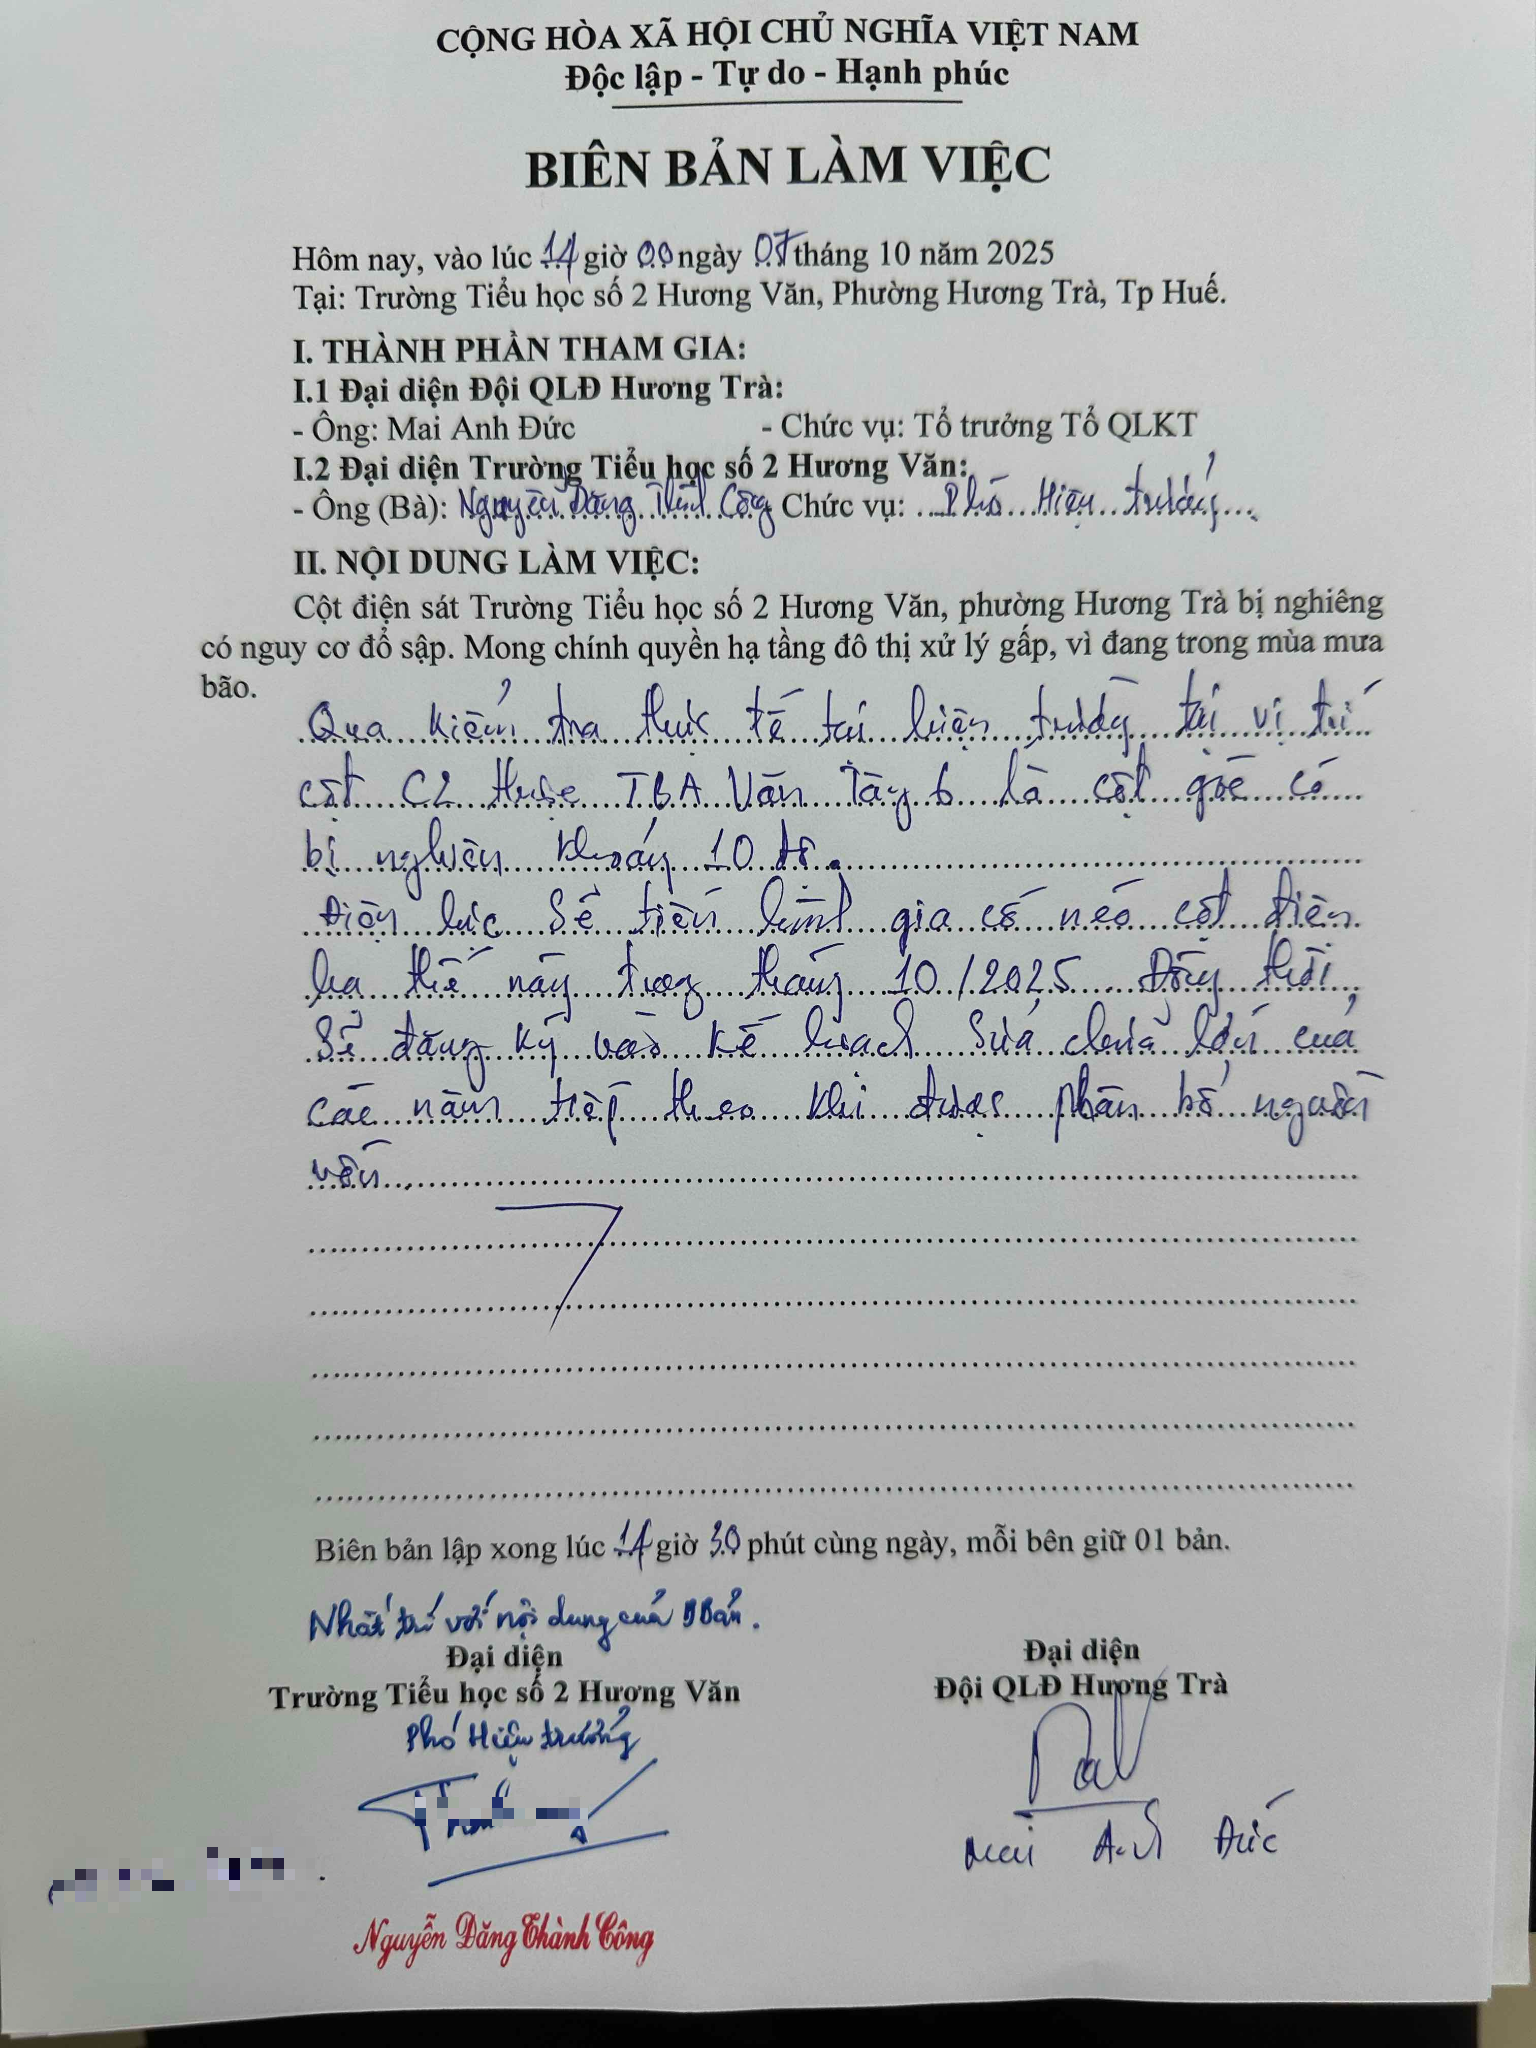 CỘNG HÒA XÃ HỘI CHỦ NGHĨA VIỆT NAM
Độc lập - Tự do - Hạnh phúc
BIÊN BẢN LÀM VIỆC
Hôm nay, vào lúc 14 giờ 00 ngày 07 tháng 10 năm 2025
Tại: Trường Tiểu học số 2 Hương Văn, Phường Hương Trà, Tp Huế.
I. THÀNH PHẦN THAM GIA:
I.1 Đại diện Đội QLĐ Hương Trà:
- Ông: Mai Anh Đức - Chức vụ: Tổ trưởng Tổ QLKT
I.2 Đại diện Trường Tiểu học số 2 Hương Văn:
- Ông (Bà): Nguyễn Đăng Thành Công Chức vụ: Phó Hiệu trưởng
II. NỘI DUNG LÀM VIỆC:
Cột điện sát Trường Tiểu học số 2 Hương Văn, phường Hương Trà bị nghiêng
có nguy cơ đổ sập. Mong chính quyền hạ tầng đô thị xử lý gấp, vì đang trong mùa mưa
bão.
Qua kiểm tra thực tế tại hiện trường tại vị trí
cột C2 thuộc TBA Văn Tây 6 là cột góc có
bị nghiên khoảng 10 độ.
Điện lực sẽ tiến hành gia cố néo cột điện
hạ thế này trong tháng 10/2025. Đồng thời
sẽ đăng ký vào kế hoạch sửa chữa lớn của
các năm tiếp theo khi được phân bổ nguồn
vốn.
Biên bản lập xong lúc 14 giờ 30 phút cùng ngày, mỗi bên giữ 01 bản.
Nhất trí với nội dung của BBản.
Đại diện
Trường Tiểu học số 2 Hương Văn
Phó Hiệu trưởng
Nguyễn Đăng Thành Công
Đại diện
Đội QLĐ Hương Trà
Mai Anh Đức